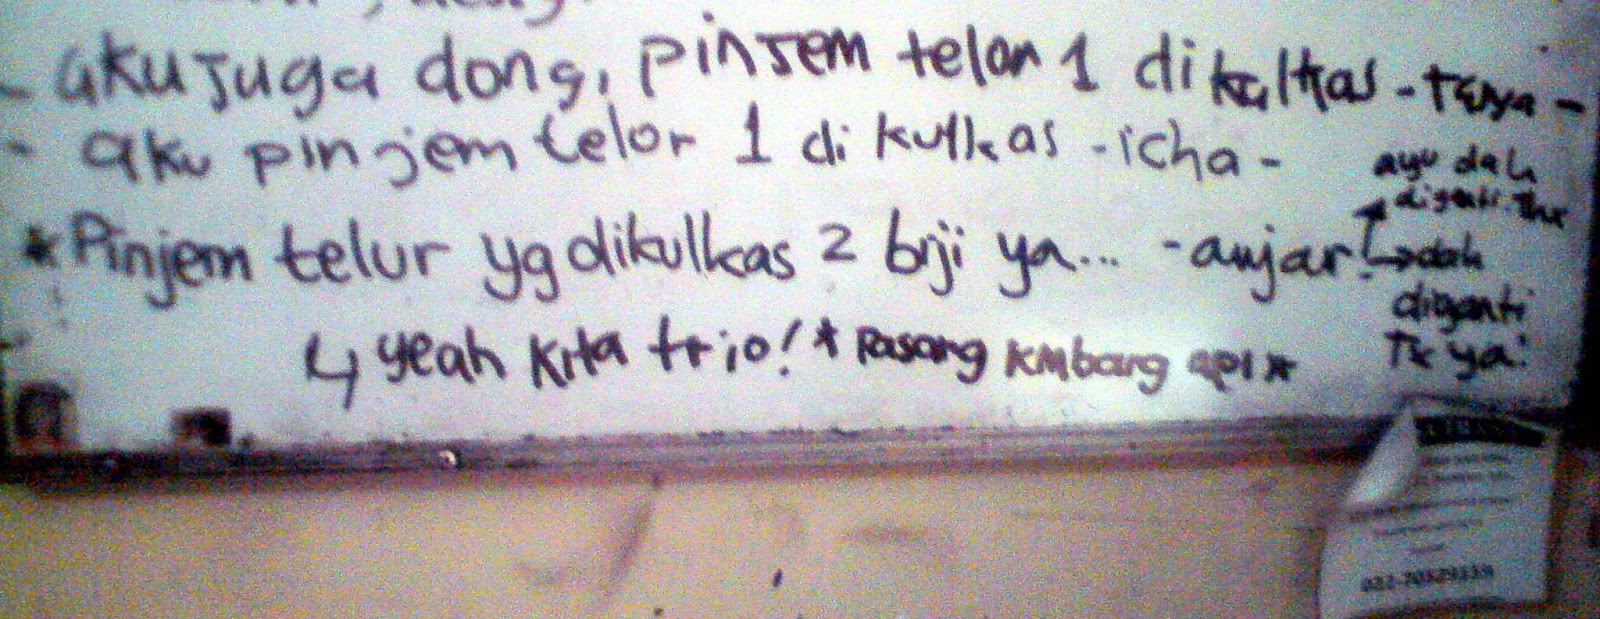 - aku juga dong, pinjem telor 1 di kulkas -
- aku pinjem telor 1 di kulkas - icha -
* Pinjem telur yg dikulkas 2 biji ya... - anjar
ayu dah
diganti. Thx
dah
diganti
Tx ya!
↳ yeah kita trio! * Pasang kmbang api *